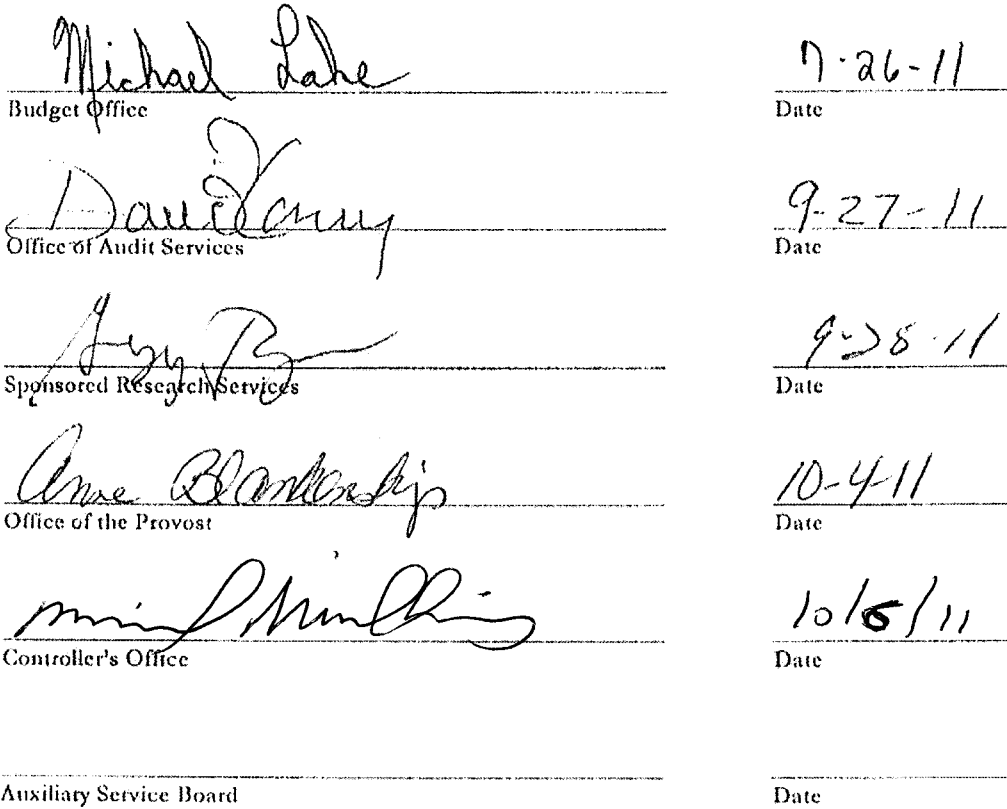 Michael Lake 7-26-11
Budget Office Date
David 9-27-11
Office of Audit Services Date
9-28-11
Sponsored Research Services Date
Anne Blankenship 10-4-11
Office of the Provost Date
10/6/11
Controller's Office Date
Auxiliary Service Board Date